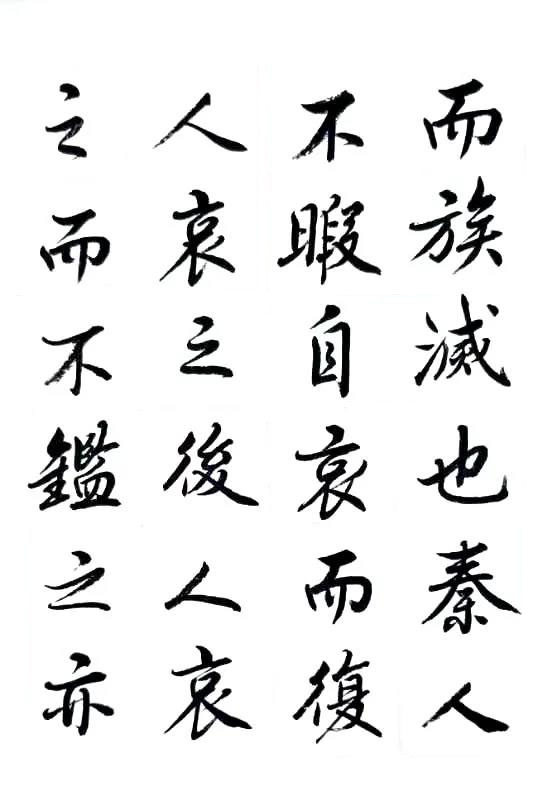 而族滅也秦人
不暇自哀而復
人哀之後人哀
之而不鑑之亦